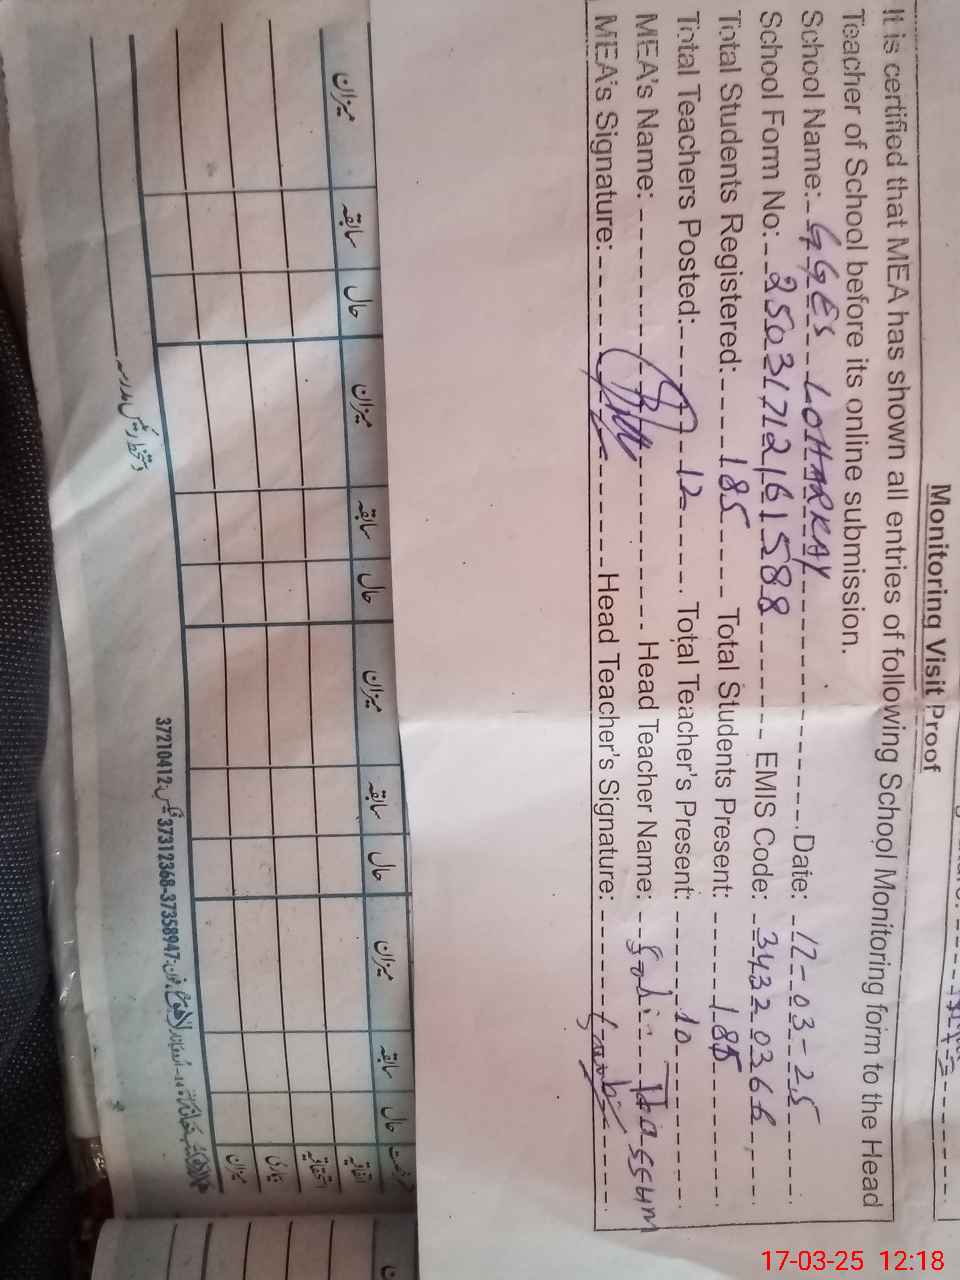 Monitoring Visit Proof
It is certified that MEA has shown all entries of following School Monitoring form to the Head
Teacher of School before its online submission.
School Name:- GGES LOHARKAY Date: 17-03-25
School Form No:- 25031712161588 EMIS Code: 34320366
Total Students Registered: 185 Total Students Present: 185
Total Teachers Posted: 12 Total Teacher's Present: 10
MEA's Name: Head Teacher Name: Tabassum
MEA's Signature: Head Teacher's Signature:
میزان سابقہ حال میزان سابقہ حال میزان سابقہ حال میزان سابقہ حال
اتفاقیہ
استحقاقیہ
بیماری
میزان
دستخط رئیس مدرسہ
37210412 فیکس: 37312368-37358947 فون:
17-03-25 12:18